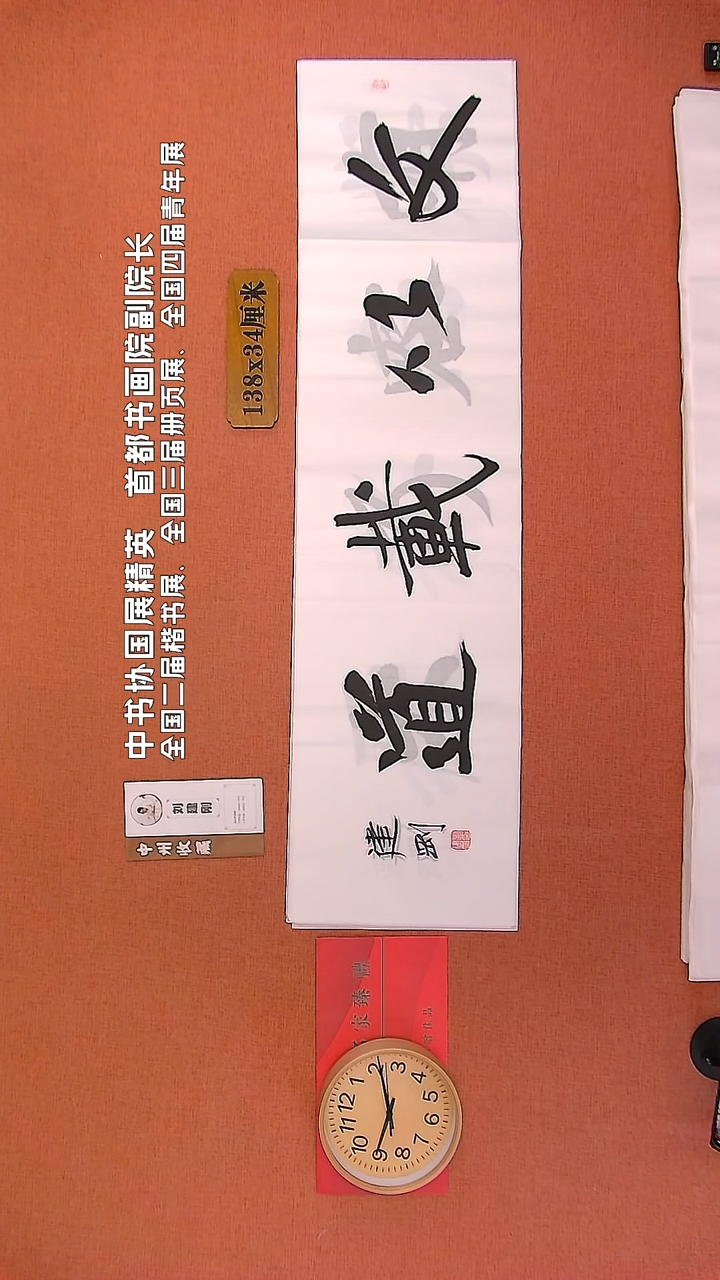 中书协国展精英 首都书画院副院长
全国二届楷书展、全国三届册页展、全国四届青年展
138x34厘米
刘建刚
中州收藏
文以載道
建剛
家臻藏
12
1
2
3
4
5
6
7
8
9
10
11